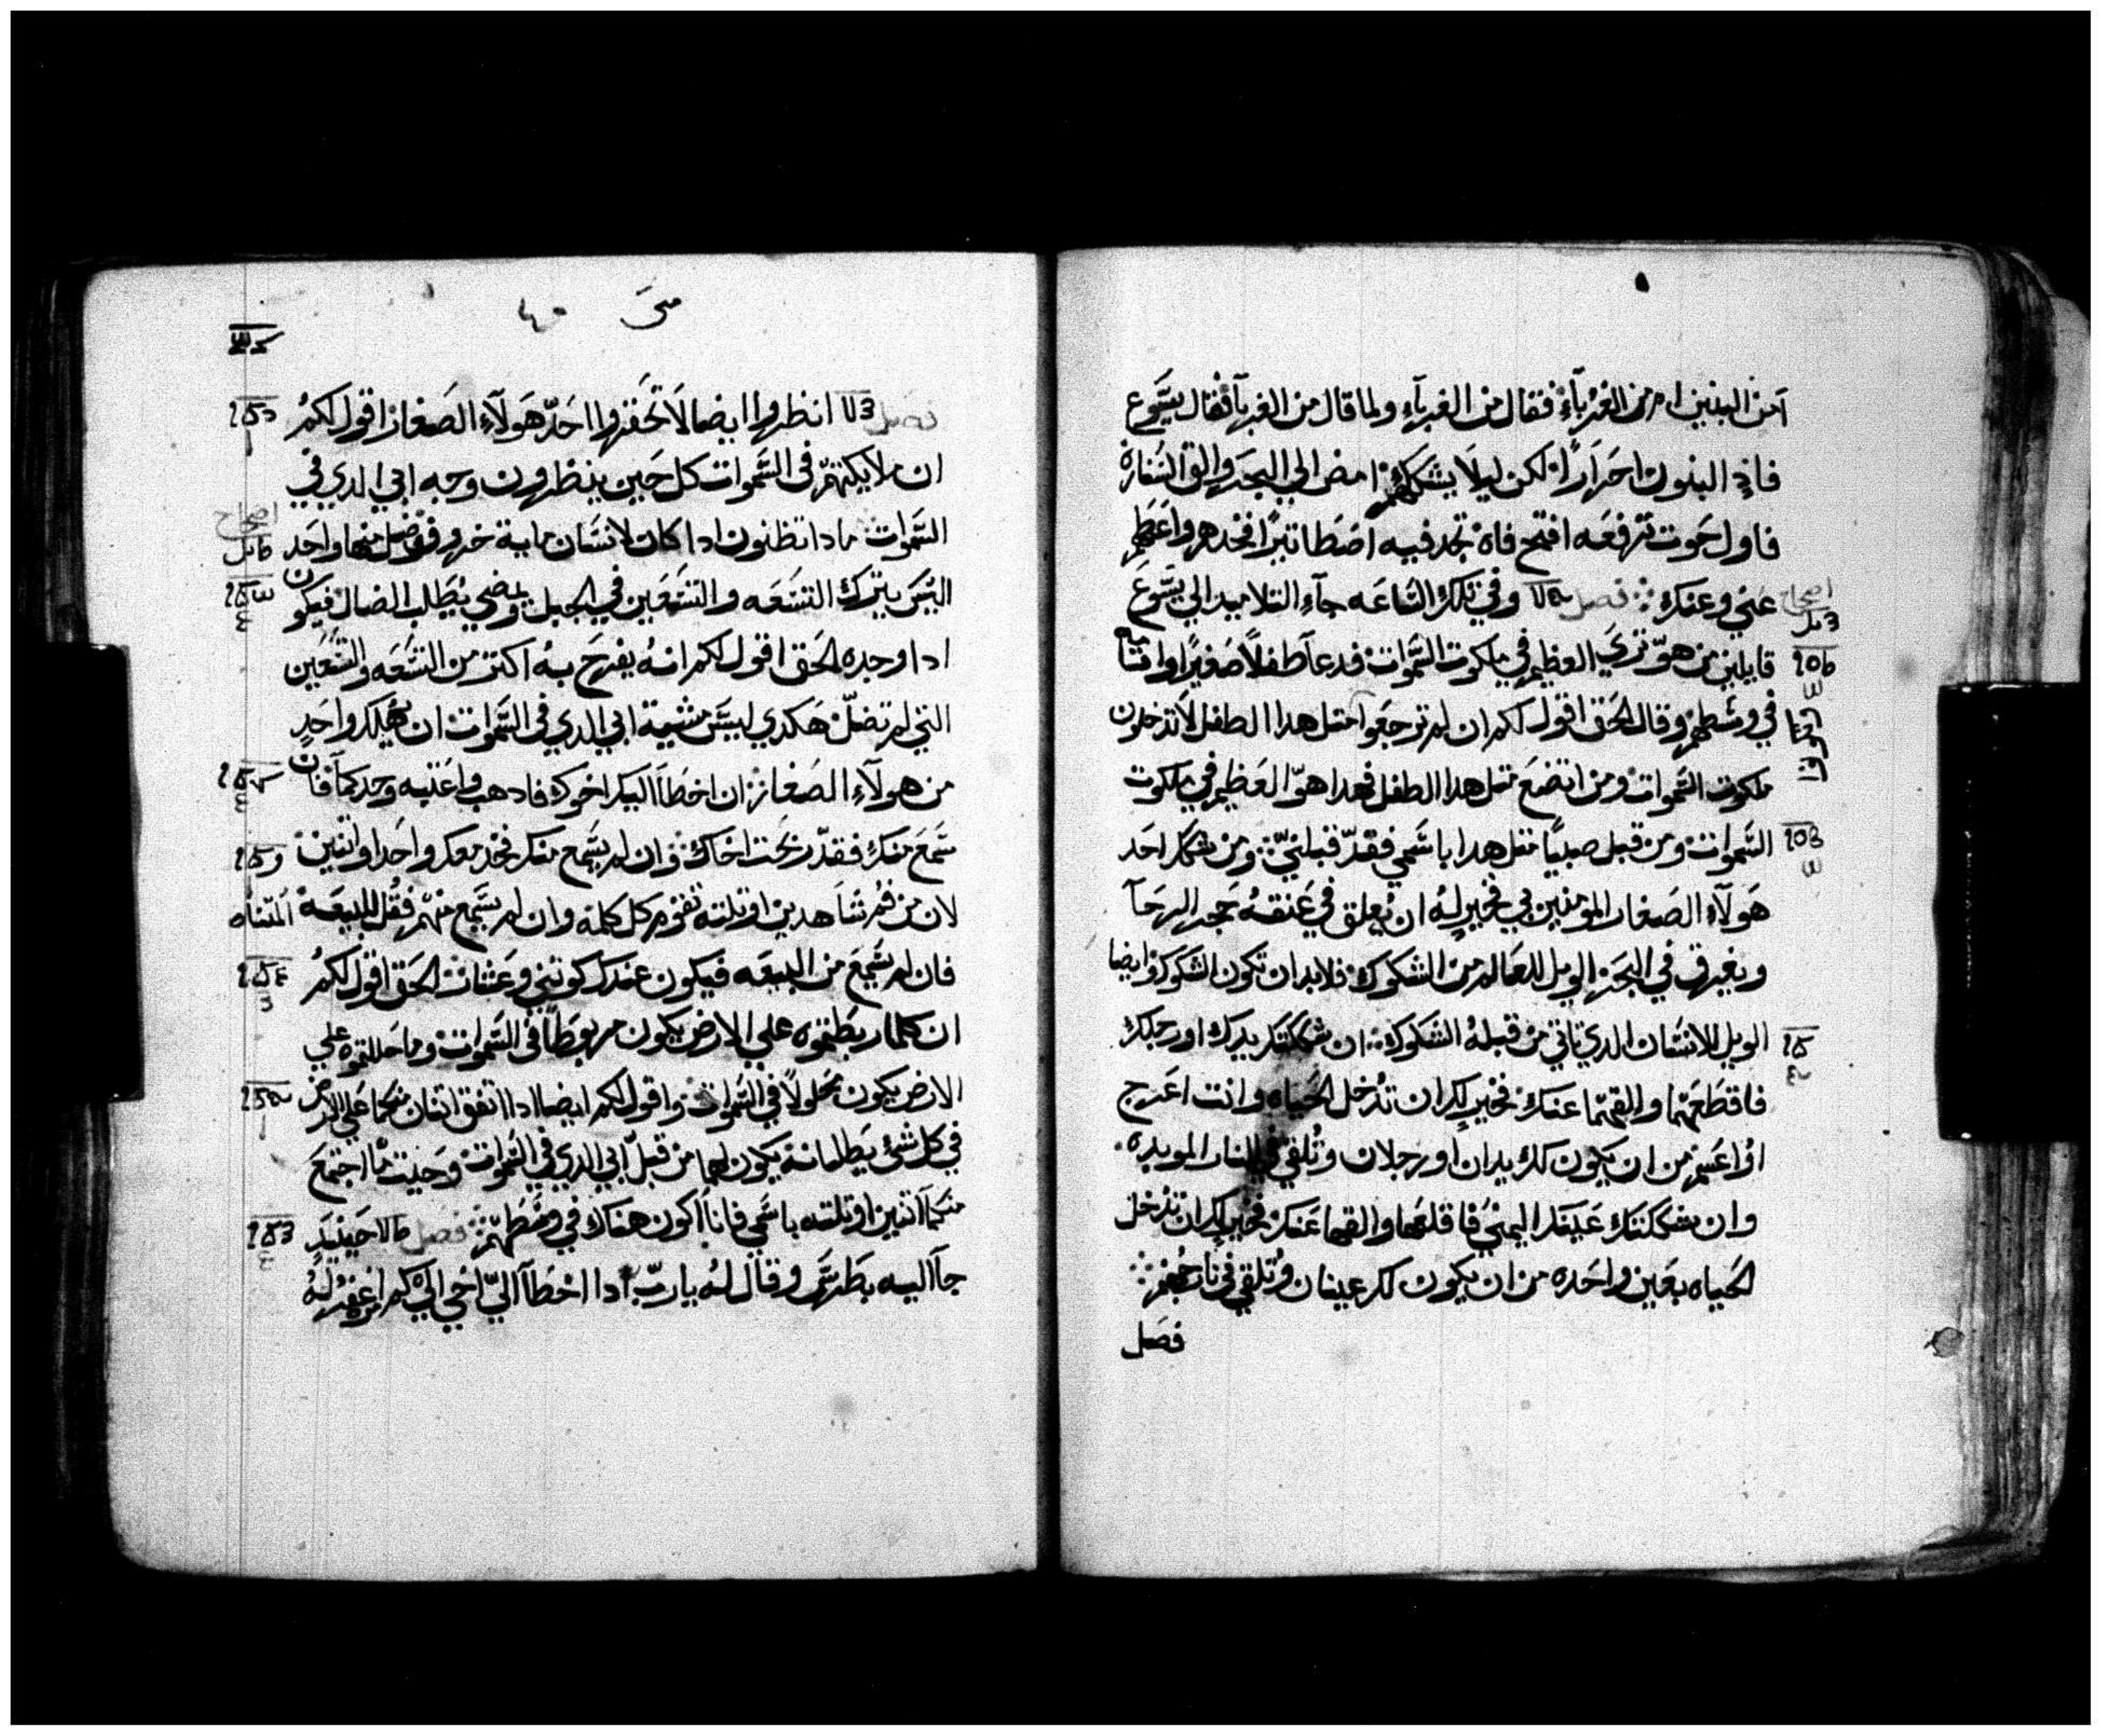 امن البنين ام من الغربآء فقال من الغربآء ولما قال من الغربآ فقال يسوع
فاذ البنون احرارًا لكن ليلا يشككهم امض الي البحر والق السنارة
فاول حوت ترفعه افتح فاه تجد فيه اصطاتيرًا فخدهم واعطهم
عني وعنك فصل وفي تلك الساعه جآء التلاميد الي يسوع
قايلين من هو تري العظيم في ملكوت السموات فدعآ طفلاً صغيرًا واقامه
في وسطهم وقال الحق اقول لكم ان لم ترجعوا متل هدا الطفل لا تدخلون
ملكوت السموات ومن اتضع متل هدا الطفل فهدا هو العظيم في ملكوت
السموات ومن قبل صبيًا متل هدا باسمي فقد قبلني ومن شكك احد
هولآء الصغار المومنين بي فخير له ان يعلق في عنقه حجر الرحآ
ويغرق في البحر الويل للعالم من الشكوك فلا بد ان تكون الشكوك وايضا
الويل للانسان الدي تاتي من قبله الشكوك ان شككتك يدك او رجلك
فاقطعهما والقهما عنك فخير لك ان تدخل الحياه وانت اعرج
او اعسم من ان يكون لك يدان او رجلان وتلقي في النار الموبده
وان شككتك عينك اليمني فاقلعها والقها عنك فخير لك ان تدخل
الحياه بعين واحده من ان يكون لك عينان وتلقي في نار جهنم
فصل
اصحاح
متي
فصل انظروا ايضا لا تحقروا احد هولآء الصغار اقول لكم
ان ملايكتهم في السموات كل حين ينظرون وجه ابي الدي في
السموات مادا تظنون ادا كان لانسان ماية خروف فضل منها واحد
اليس يترك التسعه والتسعين في الجبل ويمضي يطلب الضال فيكون
ادا وجده الحق اقول لكم انه يفرح به اكتر من التسعه والتسعين
التي لم تضل هكدي ليس مشية ابي الدي في السموات ان يهلك واحد
من هولآء الصغار ان اخطآ اليك اخوك فادهب واعتبه وحدكمآ فان
سمع منك فقد ربحت اخاك وان لم يسمع منك فخد معك واحدا او اتنين
لان من فم شاهدين او تلته تقوم كل كلمه وان لم يسمع منهم فقل للبيعة
فان لم يسمع من البيعه فيكون عندك كوتني وعشار الحق اقول لكم
ان كلما ربطتموه علي الارض يكون مربوطًا في السموات وما حللتموه علي
الارض يكون محلولاً في السموات واقول لكم ايضا ادا اتفق اتنان منكما علي الارض
في كل شئ يطلبانه يكون لهما من قبل ابي الدي في السموات وحيت ما اجتمع
منكمآ اتنين او تلته باسمي فانآ اكون هناك في وسطهم فصل حينيد
جآ اليه بطرس وقال له يارب ادا اخطآ الي اخي الي كم اغفر له
اصحاح